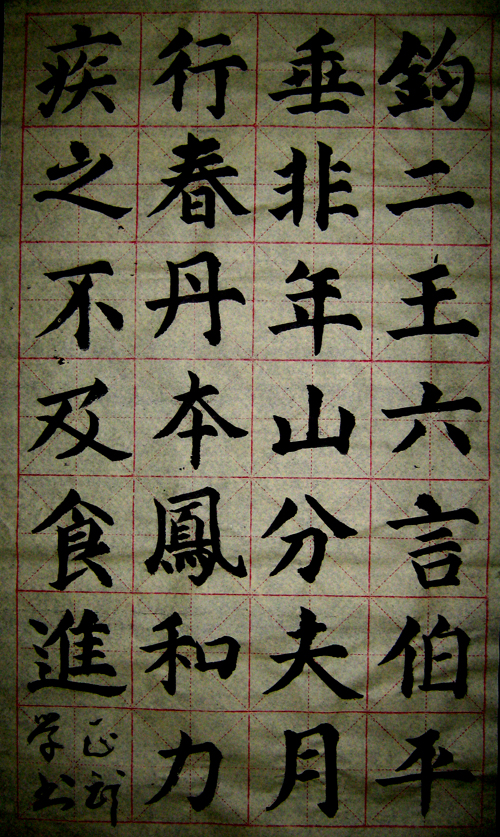 鈞二王六言伯平
垂非年山分夫月
行春丹本鳳和力
疾之不及食進
正
学书